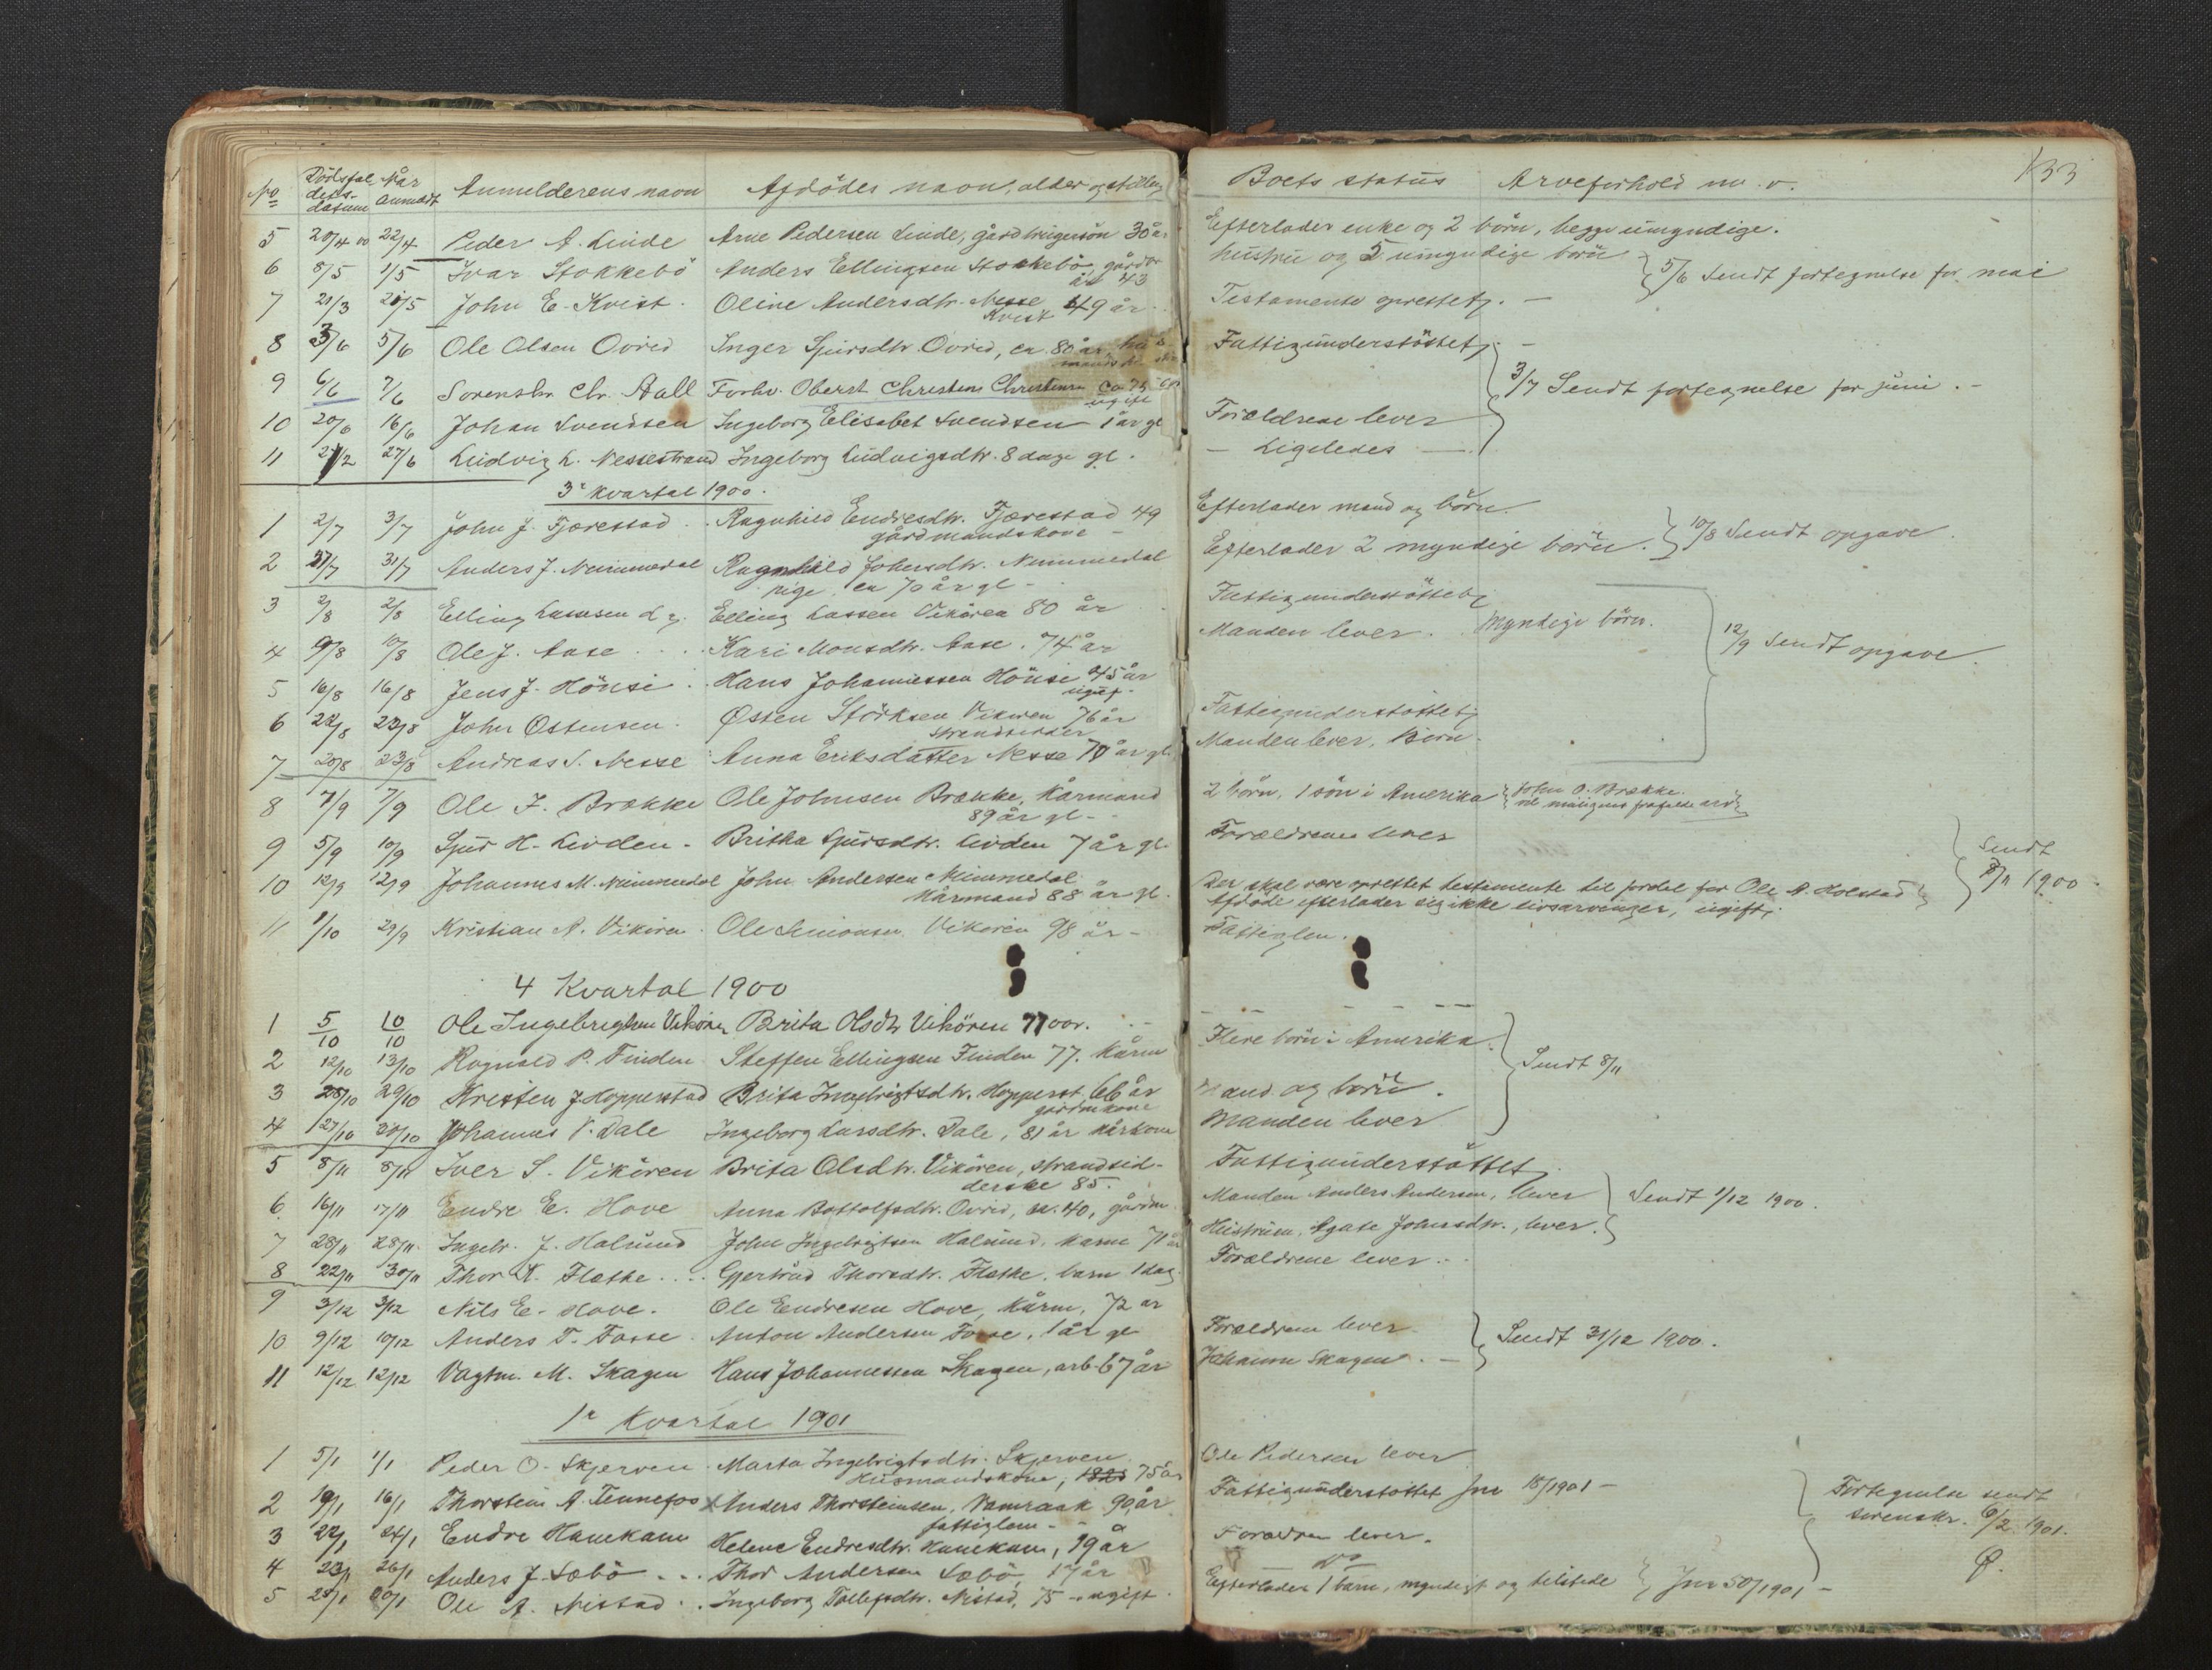 No Dödsfaldets datum Når anmeldt Anmelderens navn Afdödes navn, alder og stilling Boets status Arveforhold m. v. 133
5 20/4 00 22/4 Peder A. Linde Arne Pedersen Linde, gårdbrugersön 30 år Efterlader enke og 2 börn, begge umyndige.
6 8/5 1/5 Ivar Stokkebö Anders Ellingsen Stokkebö, gårdbr. år 43 hustru og 5 umyndige börn
5/6 Sendt fortegnelse for mai
7 21/3 21/5 John E. Kvist. Oline Andersdtr. Nesse Kvist 49 år Testamente oprettet. —
8 3/6 5/6 Ole Olsen Ovrid Inger Sjursdtr. Ovrid, ca. 80 år Fattigunderstöttet. —
9 6/6 7/6 Sorenskr. Chr. Aall Forhv. Oberst Christen Christensen ca 75 ugift
3/7 Sendt fortegnelse for juni. —
10 20/6 16/6 Johan Svendsen Ingeborg Elisabet Svendsen 1 år gl Forældrene lever
11 27/2 27/6 Ludvig L. Nessestrand Ingeborg Ludvigsdtr. 8 dage gl. — Ligeledes —
3e kvartal 1900.
1 2/7 3/7 John J. Fjærestad. Ragnhild Endresdtr. Fjærestad 49 Efterlader mand og börn.
gårdmandskone —
2 31/7 31/7 Anders J. Nummedal Ragnhild Johnsdtr. Nummedal Efterlader 2 myndige börn. 10/8 Sendt opgave.
pige, ca 70 år gl —
3 2/8 2/8 Elling Lassesen Elling Lassen Vikören 80 år Fattigunderstöttet
4 9/8 10/8 Ole J. Aase Kari Monsdtr. Aase. 74 år Manden lever. Myndige börn.
12/9 Sendt opgave.
5 16/8 16/8 Jens J. Hönsi. Hans Johannessen Hönsi 45 år
ugift.
6 22/8 23/8 John Ostensen. Østen Störksen Vikören 76 år Fattigunderstöttet
strandsidder
7 20/8 23/8 Andreas S. Nesse Anna Eriksdatter Nesse 70 år gl. Manden lever. Börn.
8 7/9 7/9 Ole J. Brække Ole Johnsen Brække, Kårmand 2 börn, 1 sön i Amerika John O. Brække.
89 år gl —
9 5/9 10/9 Sjur H. Lirden. Britha Sjursdtr. Lirden 7 år gl. Forældrene lever
Sendt
10 12/9 12/9 Johannes M. Nummedal John Andersen Nummedal Der skal være oprettet testamente til fordel for Ole A. Holstad
Kårmand 88 år gl. Afdöde efterlader sig ikke livsarvinger, ugift. 1900.
11 1/10 29/9 Kristian A. Vikören. Ole Simonsen Vikören 98 år — Fattiglem.
4 Kvartal 1900
1 5/10 10/10 Ole Ingebrigtsen Vikören Brita Olsdtr Vikören 77 aar.
2 12/10 13/10 Ragnald P. Finden Steffen Ellingsen Finden 77. Kårm Flere börn i Amerika.
Sendt 8/11
3 28/10 29/10 Kristen J. Hopperstad Brita Ingebrigtsdtr. Hopperst. 66 år Mand og börn.
gårdmkone
4 27/10 30/10 Johannes V. Dale Ingeborg Larsdtr. Dale, 81 år Kårkone Manden lever
5 8/11 8/11 Iver S. Vikören Brita Olsdtr. Vikören, strandsid- Fattigunderstöttet.
derske 85.
6 16/11 17/11 Endre E. Hove Anna Bottolfsdtr. Ovrid, ca. 40, gårdm. Manden Anders Andersen, lever Sendt 1/12 1900.
7 28/11 28/11 Ingebr. J. Halsund John Ingebrigtsen Halsund. Karm 71 år Hustruen, Agate Johnsdtr., lever.
8 22/11 30/11 Thor A. Flæthe Gjertrud Thorsdtr. Flæthe. barn 1 dag Forældrene lever.
9 3/12 3/12 Nils E. Hove. Ole Endresen Hove, Kårm, 72 år
10 9/12 10/12 Anders T. Fosse. Anton Andersen Fosse, 1 år gl Forældrene lever.
Sendt 31/12 1900.
11 12/12 12/12 Vagtm. M. Skagen Hans Johannessen Skagen, arb. 67 år Johanne Skagen. —
1e Kvartal 1901
1 5/1 1/1 Peder O. Skjerven. Marta Ingebrigtsdtr. Skjerven Ole Pedersen lever
Husmandskone, 1825 75 år
2 19/1 16/1 Thorstein A. Tennefos Anders Thorsteinsen, Vamraak 90 år Fattigunderstöttet Jnr 18/1901 — Fortegnelse sendt
fattiglem — sorenskr. 6/2 1901.
3 22/1 24/1 Endre Hanekam Helene Endresdtr. Hanekam, 19 år Forældrene lever.
4 23/1 26/1 Anders J. Sæbö Thor Andersen Sæbö, 17 år — Do —
5 28/1 30/1 Ole A. Nistad. Ingeborg Tollefsdtr. Nistad, 75 — ugift. Efterlader 1 barn, myndigt og tilstede Jnr 50/1901 —